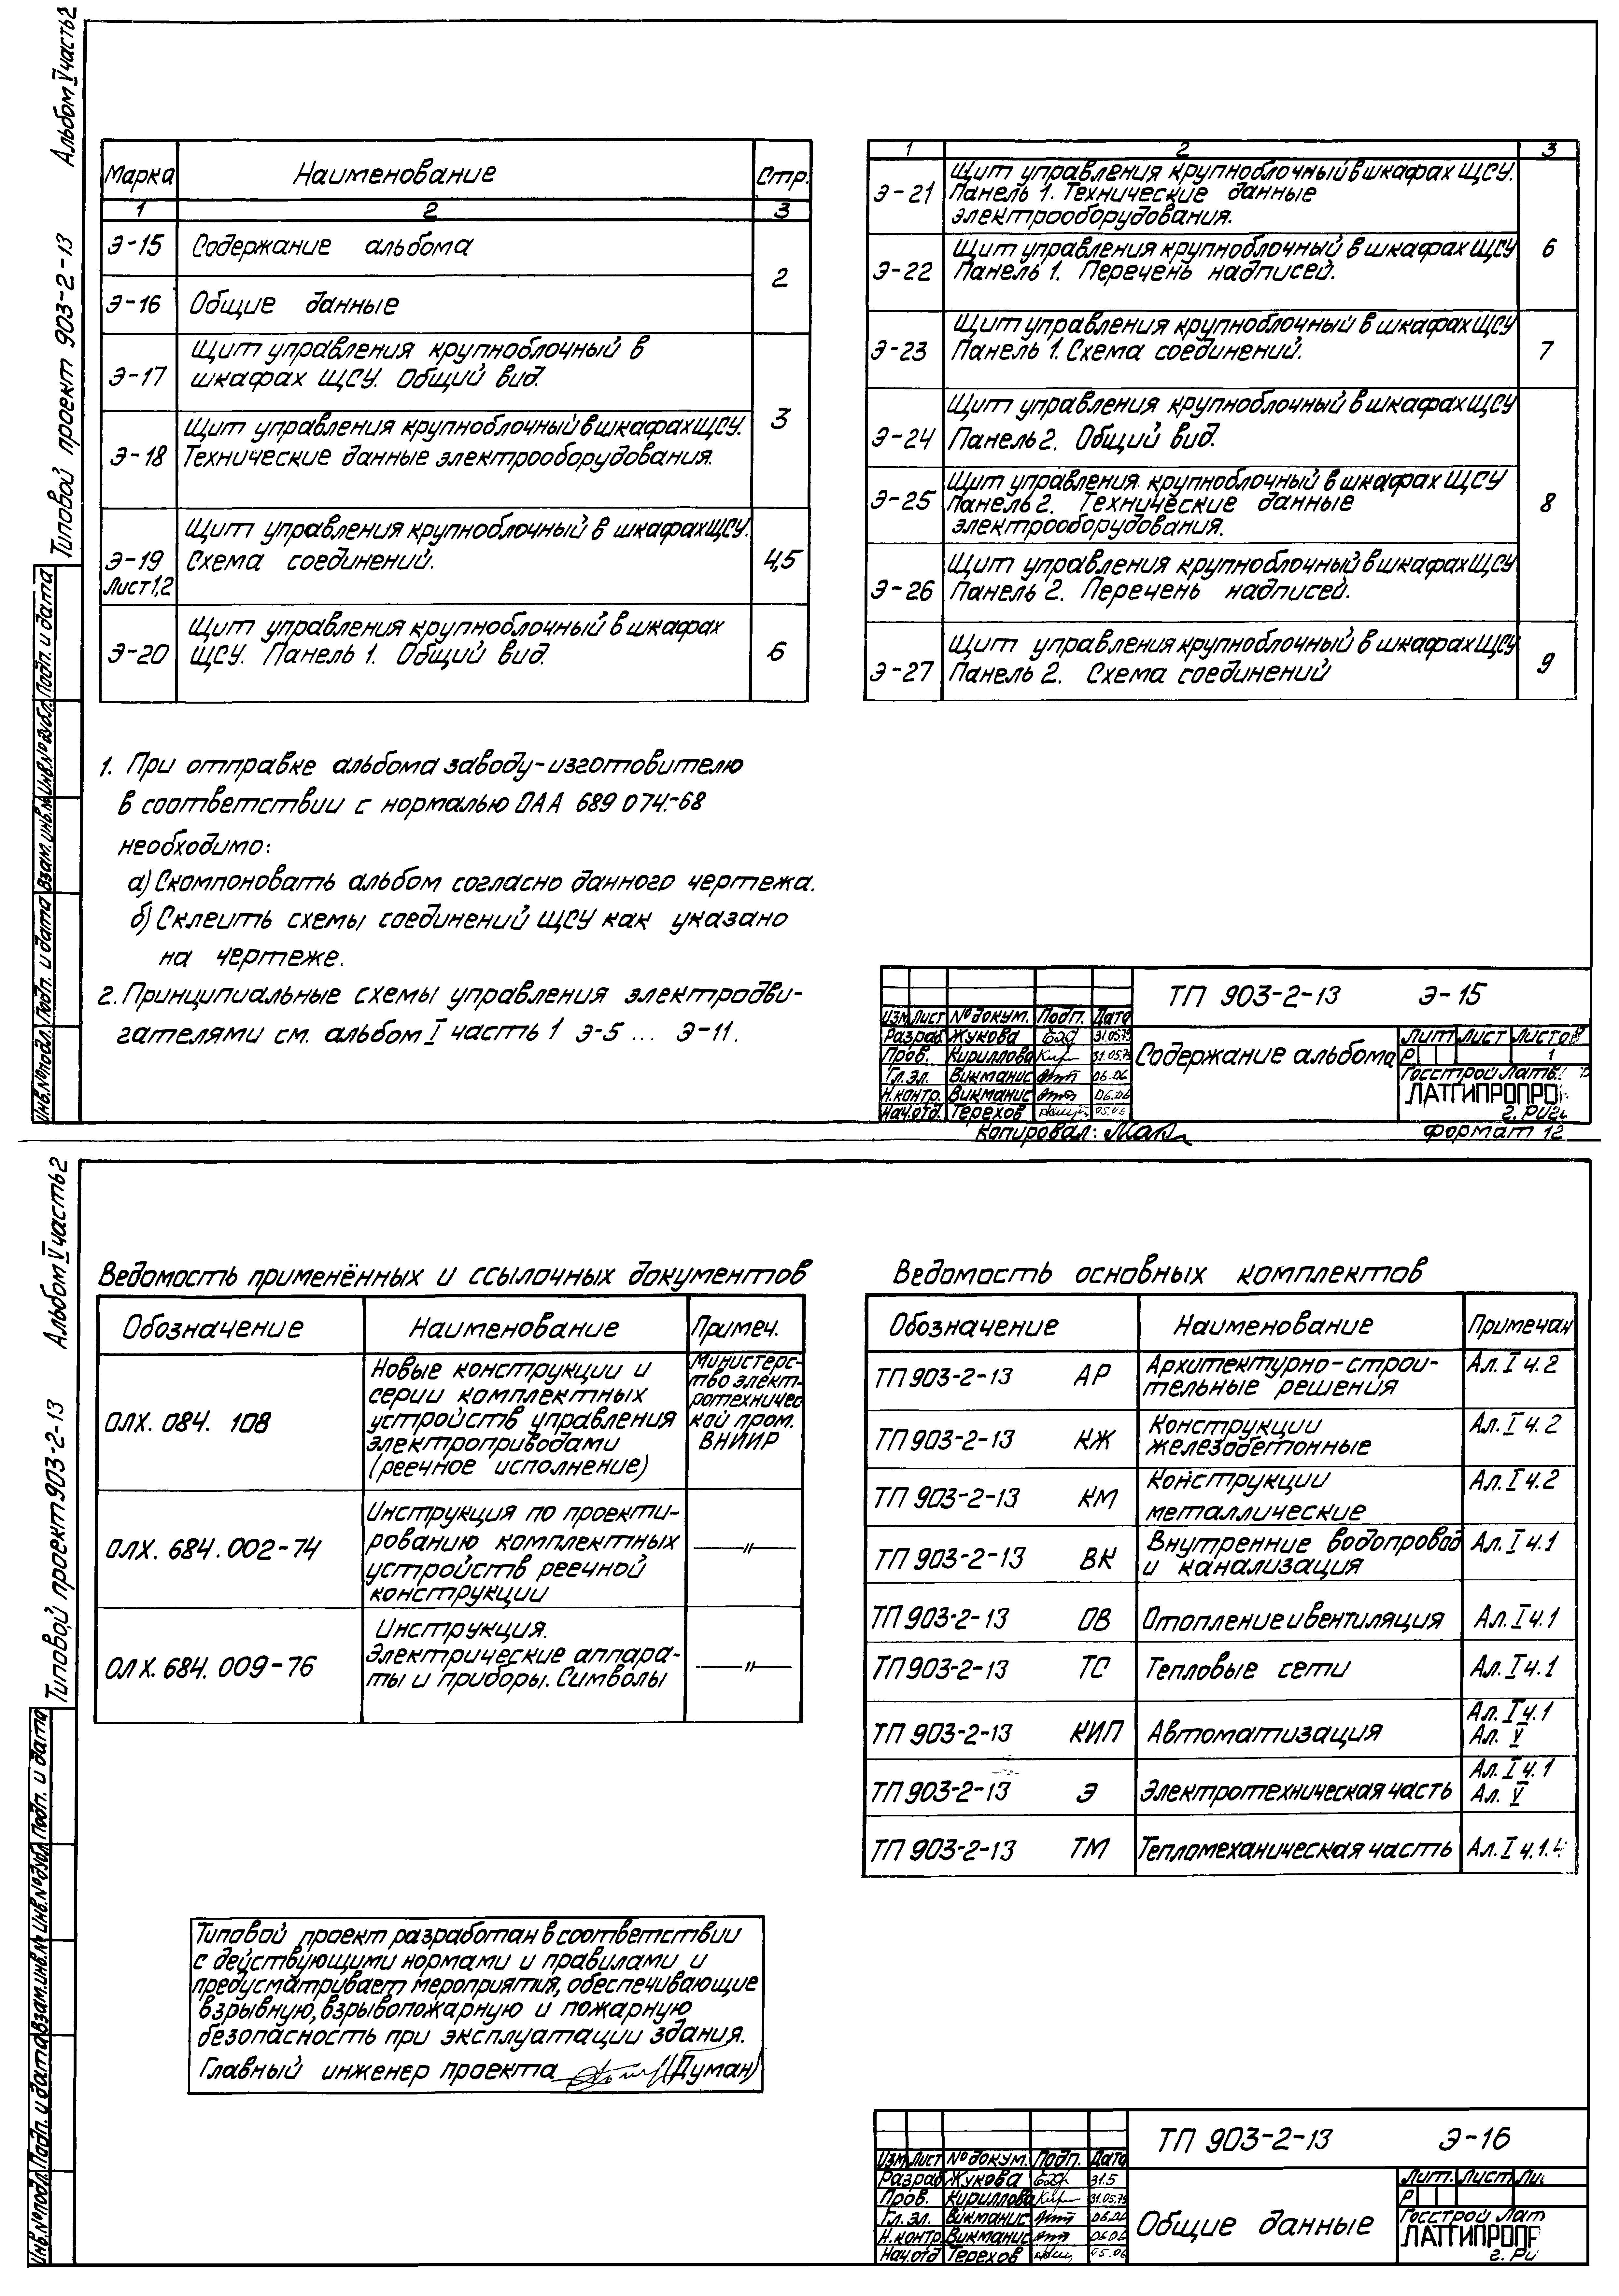 Альбом V часть 2
Типовой проект 903-2-13
Марка Наименование Стр.
1 2 3
Э-15 Содержание альбома 2
Э-16 Общие данные
Э-17 Щит управления крупноблочный в
шкафах ЩСУ. Общий вид. 3
Э-18 Щит управления крупноблочный в шкафах ЩСУ.
Технические данные электрооборудования.
Э-19 Щит управления крупноблочный в шкафах ЩСУ.
Лист 1,2 Схема соединений. 4,5
Э-20 Щит управления крупноблочный в шкафах
ЩСУ. Панель 1. Общий вид. 6
1 2 3
Э-21 Щит управления крупноблочный в шкафах ЩСУ.
Панель 1. Технические данные
электрооборудования. 6
Э-22 Щит управления крупноблочный в шкафах ЩСУ
Панель 1. Перечень надписей.
Э-23 Щит управления крупноблочный в шкафах ЩСУ
Панель 1. Схема соединений. 7
Э-24 Щит управления крупноблочный в шкафах ЩСУ
Панель 2. Общий вид.
Э-25 Щит управления крупноблочный в шкафах ЩСУ
Панель 2. Технические данные
электрооборудования. 8
Э-26 Щит управления крупноблочный в шкафах ЩСУ
Панель 2. Перечень надписей.
Э-27 Щит управления крупноблочный в шкафах ЩСУ
Панель 2. Схема соединений 9
1. При отправке альбома заводу-изготовителю
в соответствии с нормалью ОАА 689 074.-68
необходимо:
а) Скомпоновать альбом согласно данного чертежа.
б) Склеить схемы соединений ЩСУ как указано
на чертеже.
2. Принципиальные схемы управления электродви-
гателями см. альбом I часть 1 Э-5 ... Э-11.
Инв.№подл. Подп. и дата Взам.инв.№ Инв.№дубл. Подп. и дата
ТП 903-2-13 Э-15
Изм Лист №докум. Подп. Дата
Разраб. Жукова 31.05.79
Пров. Кириллова 31.05.79
Гл.эл. Викманис 06.06
Н.контр. Викманис 06.06
Нач.отд. Терехов 05.06
Содержание альбома
Лит Лист Листов
Р 1
Госстрой Латв.
ЛАТГИПРОПРО
г. Риг
Копировал: Формат 12
Альбом V часть 2
Типовой проект 903-2-13
Ведомость применённых и ссылочных документов
Обозначение Наименование Примеч.
ОЛХ. 084. 108 Новые конструкции и
серии комплектных
устройств управления
электроприводами
(реечное исполнение)
Министерс-
тво элект-
ротехничес
кой пром.
ВНИИР
ОЛХ. 684. 002-74 Инструкция по проекти-
рованию комплектных
устройств реечной
конструкции —"—
ОЛХ. 684. 009-76 Инструкция.
Электрические аппара-
ты и приборы. Символы —"—
Ведомость основных комплектов
Обозначение Наименование Примечан
ТП 903-2-13 АР Архитектурно-строи-
тельные решения Ал. I ч. 2
ТП 903-2-13 КЖ Конструкции
железобетонные Ал. I ч. 2
ТП 903-2-13 КМ Конструкции
металлические Ал. I ч.2
ТП 903-2-13 ВК Внутренние водопровод
и канализация Ал. I ч.1
ТП 903-2-13 ОВ Отопление и вентиляция Ал. I ч.1
ТП 903-2-13 ТС Тепловые сети Ал. I ч.1
ТП 903-2-13 КИП Автоматизация Ал. I ч.1
Ал. V
ТП 903-2-13 Э Электротехническая часть Ал. I ч.1
Ал. V
ТП 903-2-13 ТМ Тепломеханическая часть Ал. I ч.1.
Типовой проект разработан в соответствии
с действующими нормами и правилами и
предусматривает мероприятия, обеспечивающие
взрывную, взрывопожарную и пожарную
безопасность при эксплуатации здания.
Главный инженер проекта (Думан)
Инв.№подл. Подп. и дата Взам.инв.№ Инв.№дубл. Подп. и дата
ТП 903-2-13 Э-16
Изм Лист №докум. Подп. Дата
Разраб Жукова 31.5
Пров. Кириллова 31.05.79
Гл.эл. Викманис 06.06
Н.контр. Викманис 06.06
Нач.отд Терехов 05.06
Общие данные
Лит. Лист Ли
Р
Госстрой Лат
ЛАТГИПРОПР
г. Ри